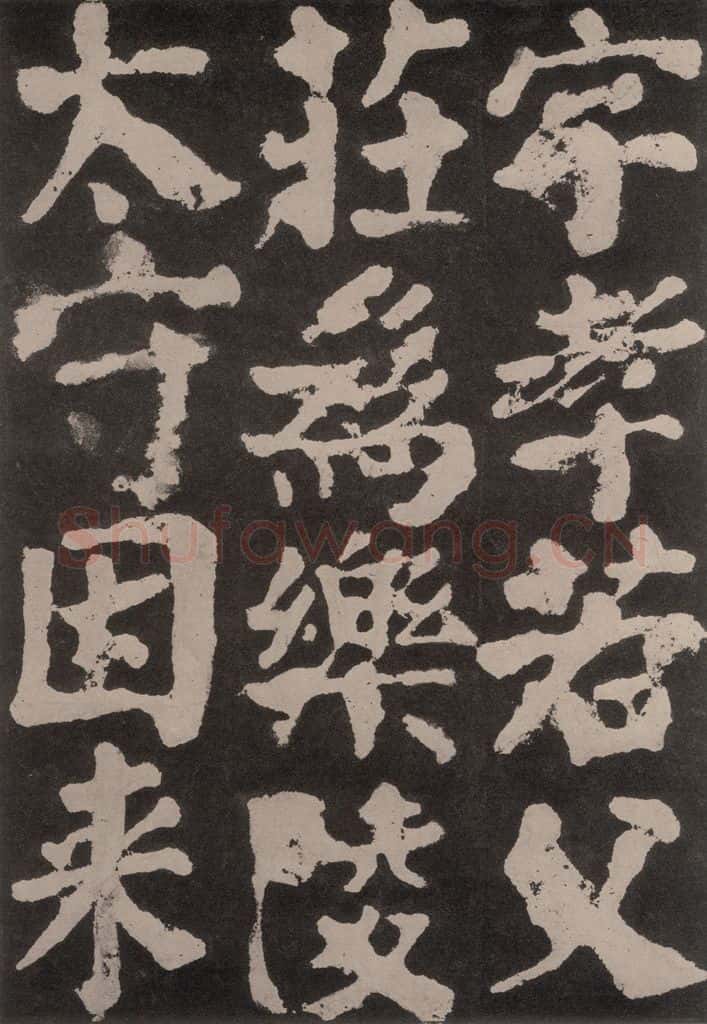 字孝若父
莊爲樂陵
太守因来
Shufawang.CN